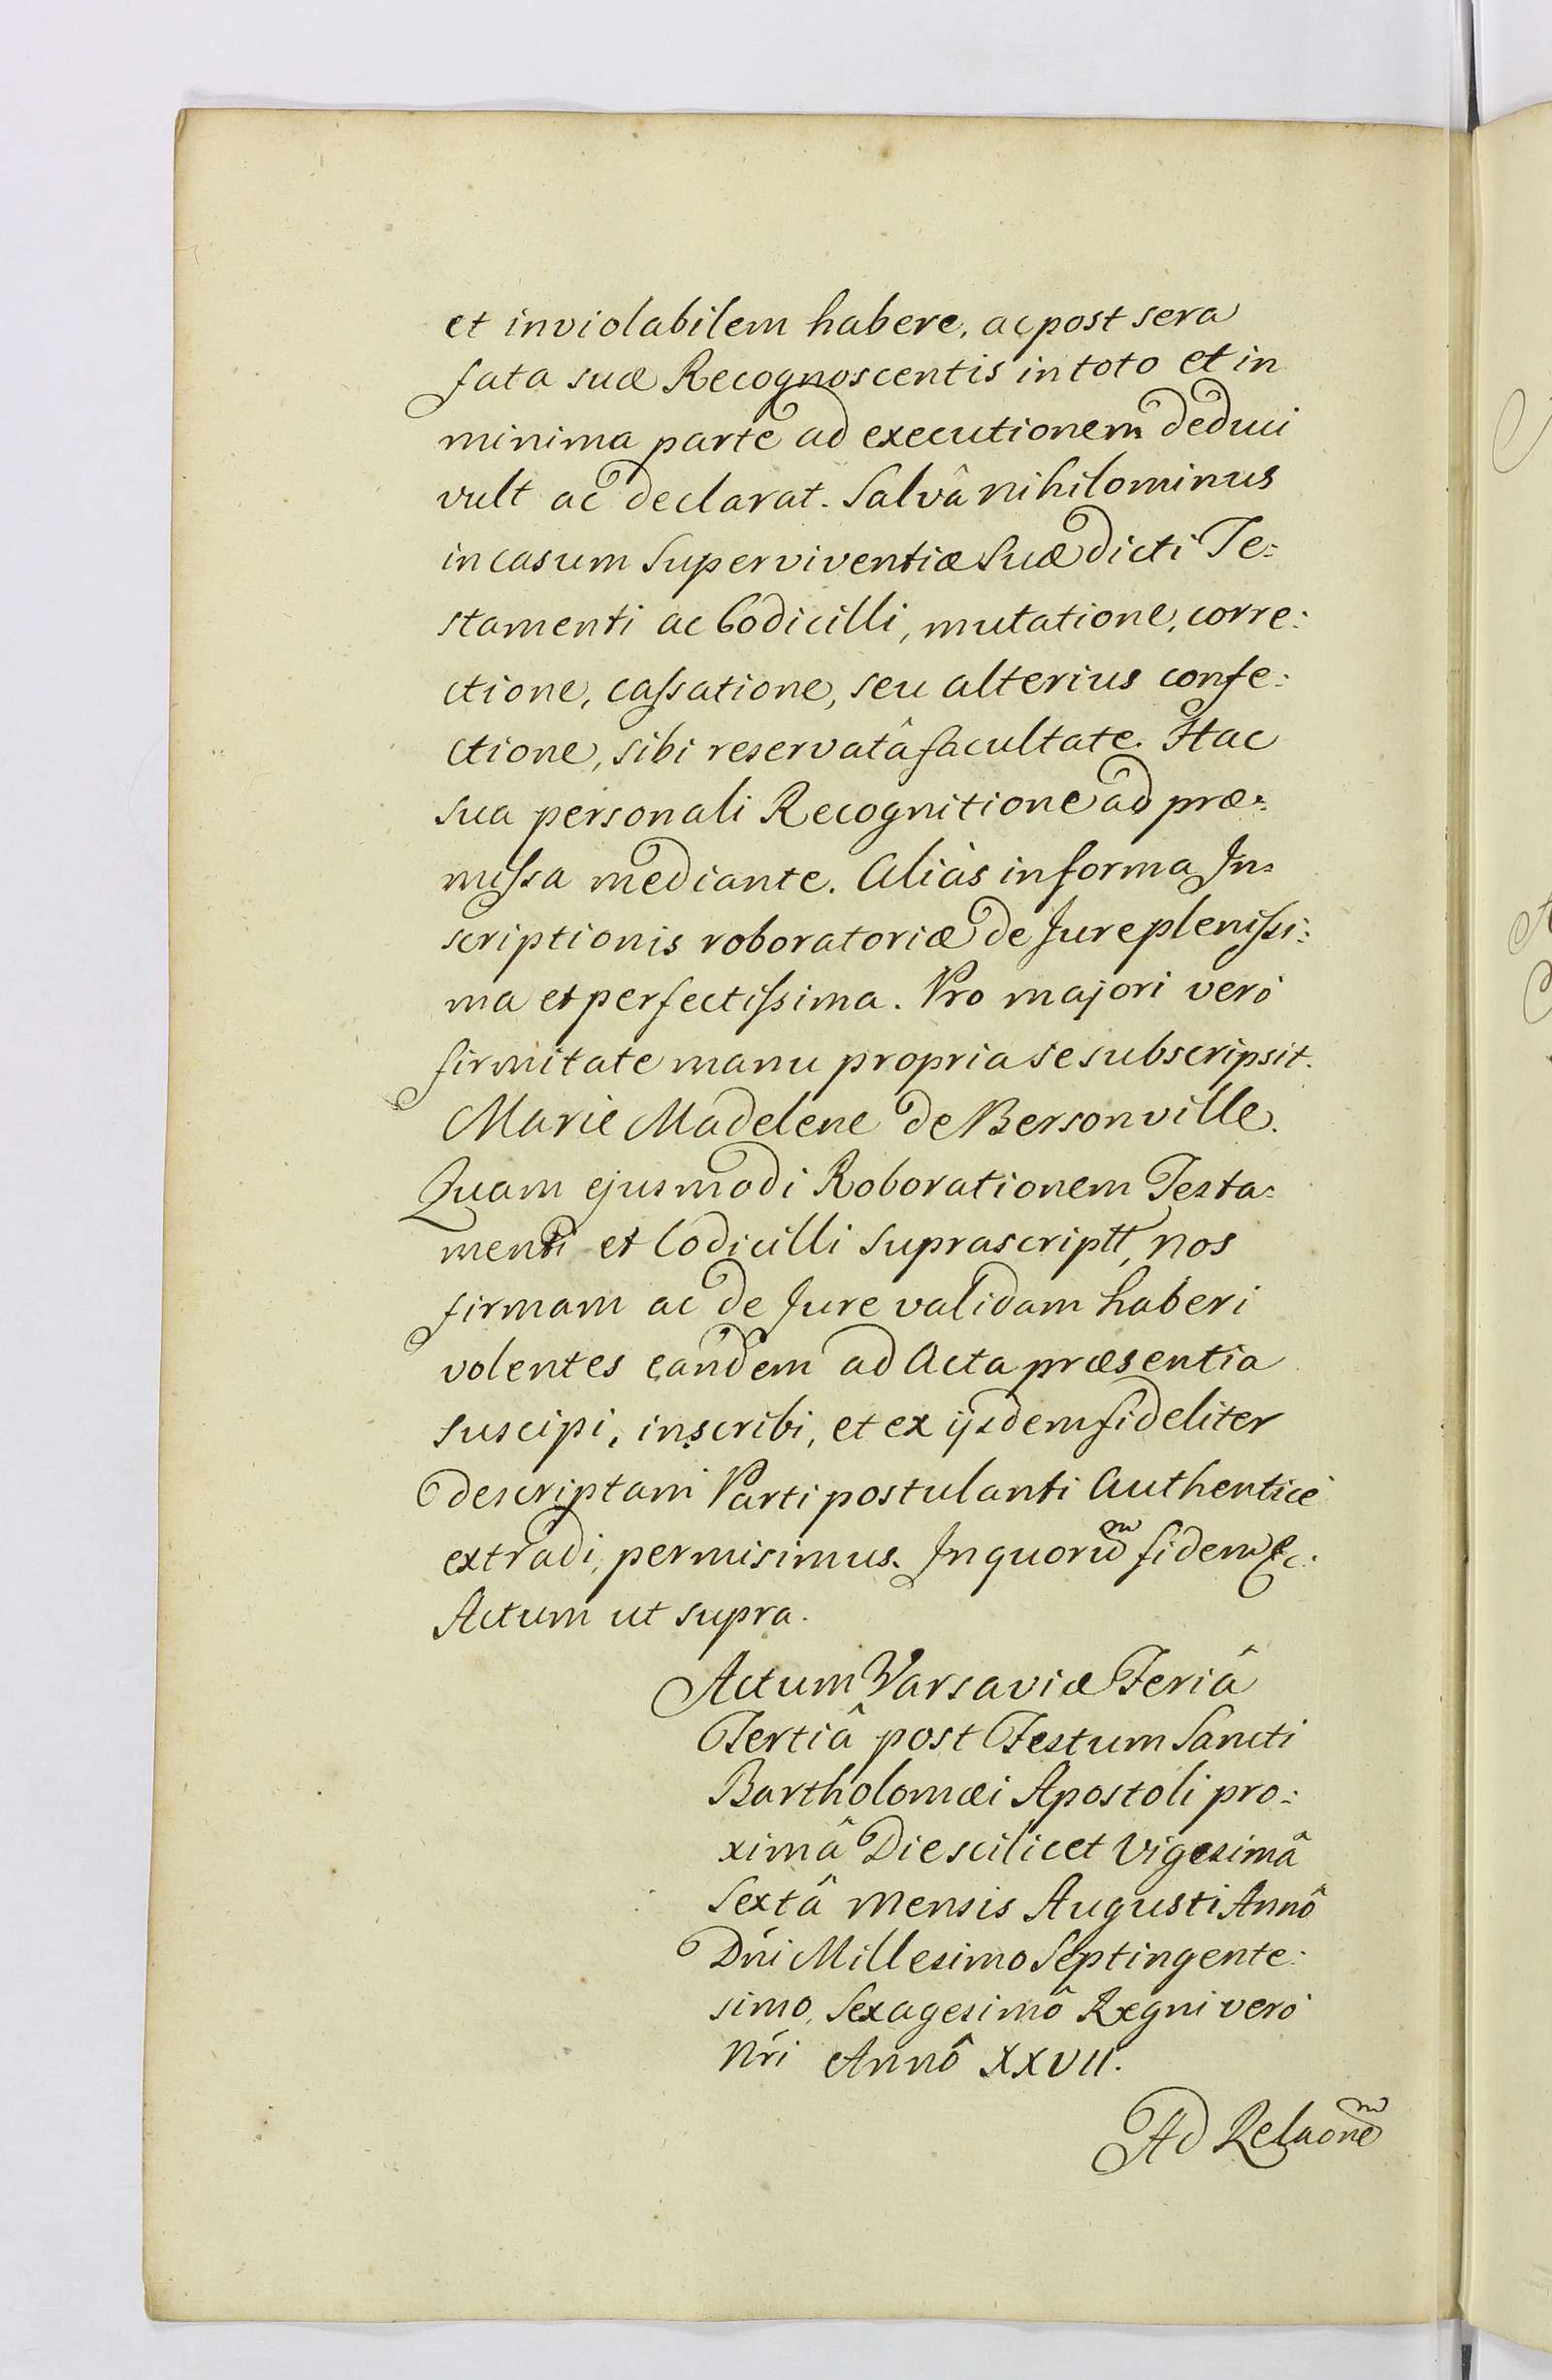 et inviolabilem habere, ac post sera
fata suæ Recognoscentis in toto et in
minima parte ad executionem deduci
vult ac declarat. Salvâ nihilominus
in casum Superviventiæ Suæ dicti Te:
stamenti ac Codicilli, mutatione, corre:
ctione, caſsatione, seu alterius confe:
ctione, sibi reservatâ facultate. Hac
sua personali Recognitione ad præ:
miſsa mediante. Aliàs in forma In:
scriptionis roboratoriæ de Jure pleniſsi:
ma et perfectiſsima. Pro majori verò
firmitate manu propria se subscripsit.
Marie Madelene de Bersonville.
Quam ejusmodi Roborationem Testa:
menti et Codicilli Suprascriptt, nos
firmam ac de Jure validam haberi
volentes eandem ad Acta præsentia
suscipi, inscribi, et ex ijsdem fideliter
descriptam Parti postulanti Authenticè
extradi, permisimus. In quorũm fidem &c.
Actum ut supra.
Actum Varsaviæ Feriâ
Tertiâ post Festum Sancti
Bartholomæi Apostoli pro:
ximâ Die scilicet Vigesimâ
Sextâ Mensis Augusti Annô
Dńi Millesimo Septingente:
simo, Sexagesimô Regni verò
Nŕi Annô XXVII.
Ad Relaonem